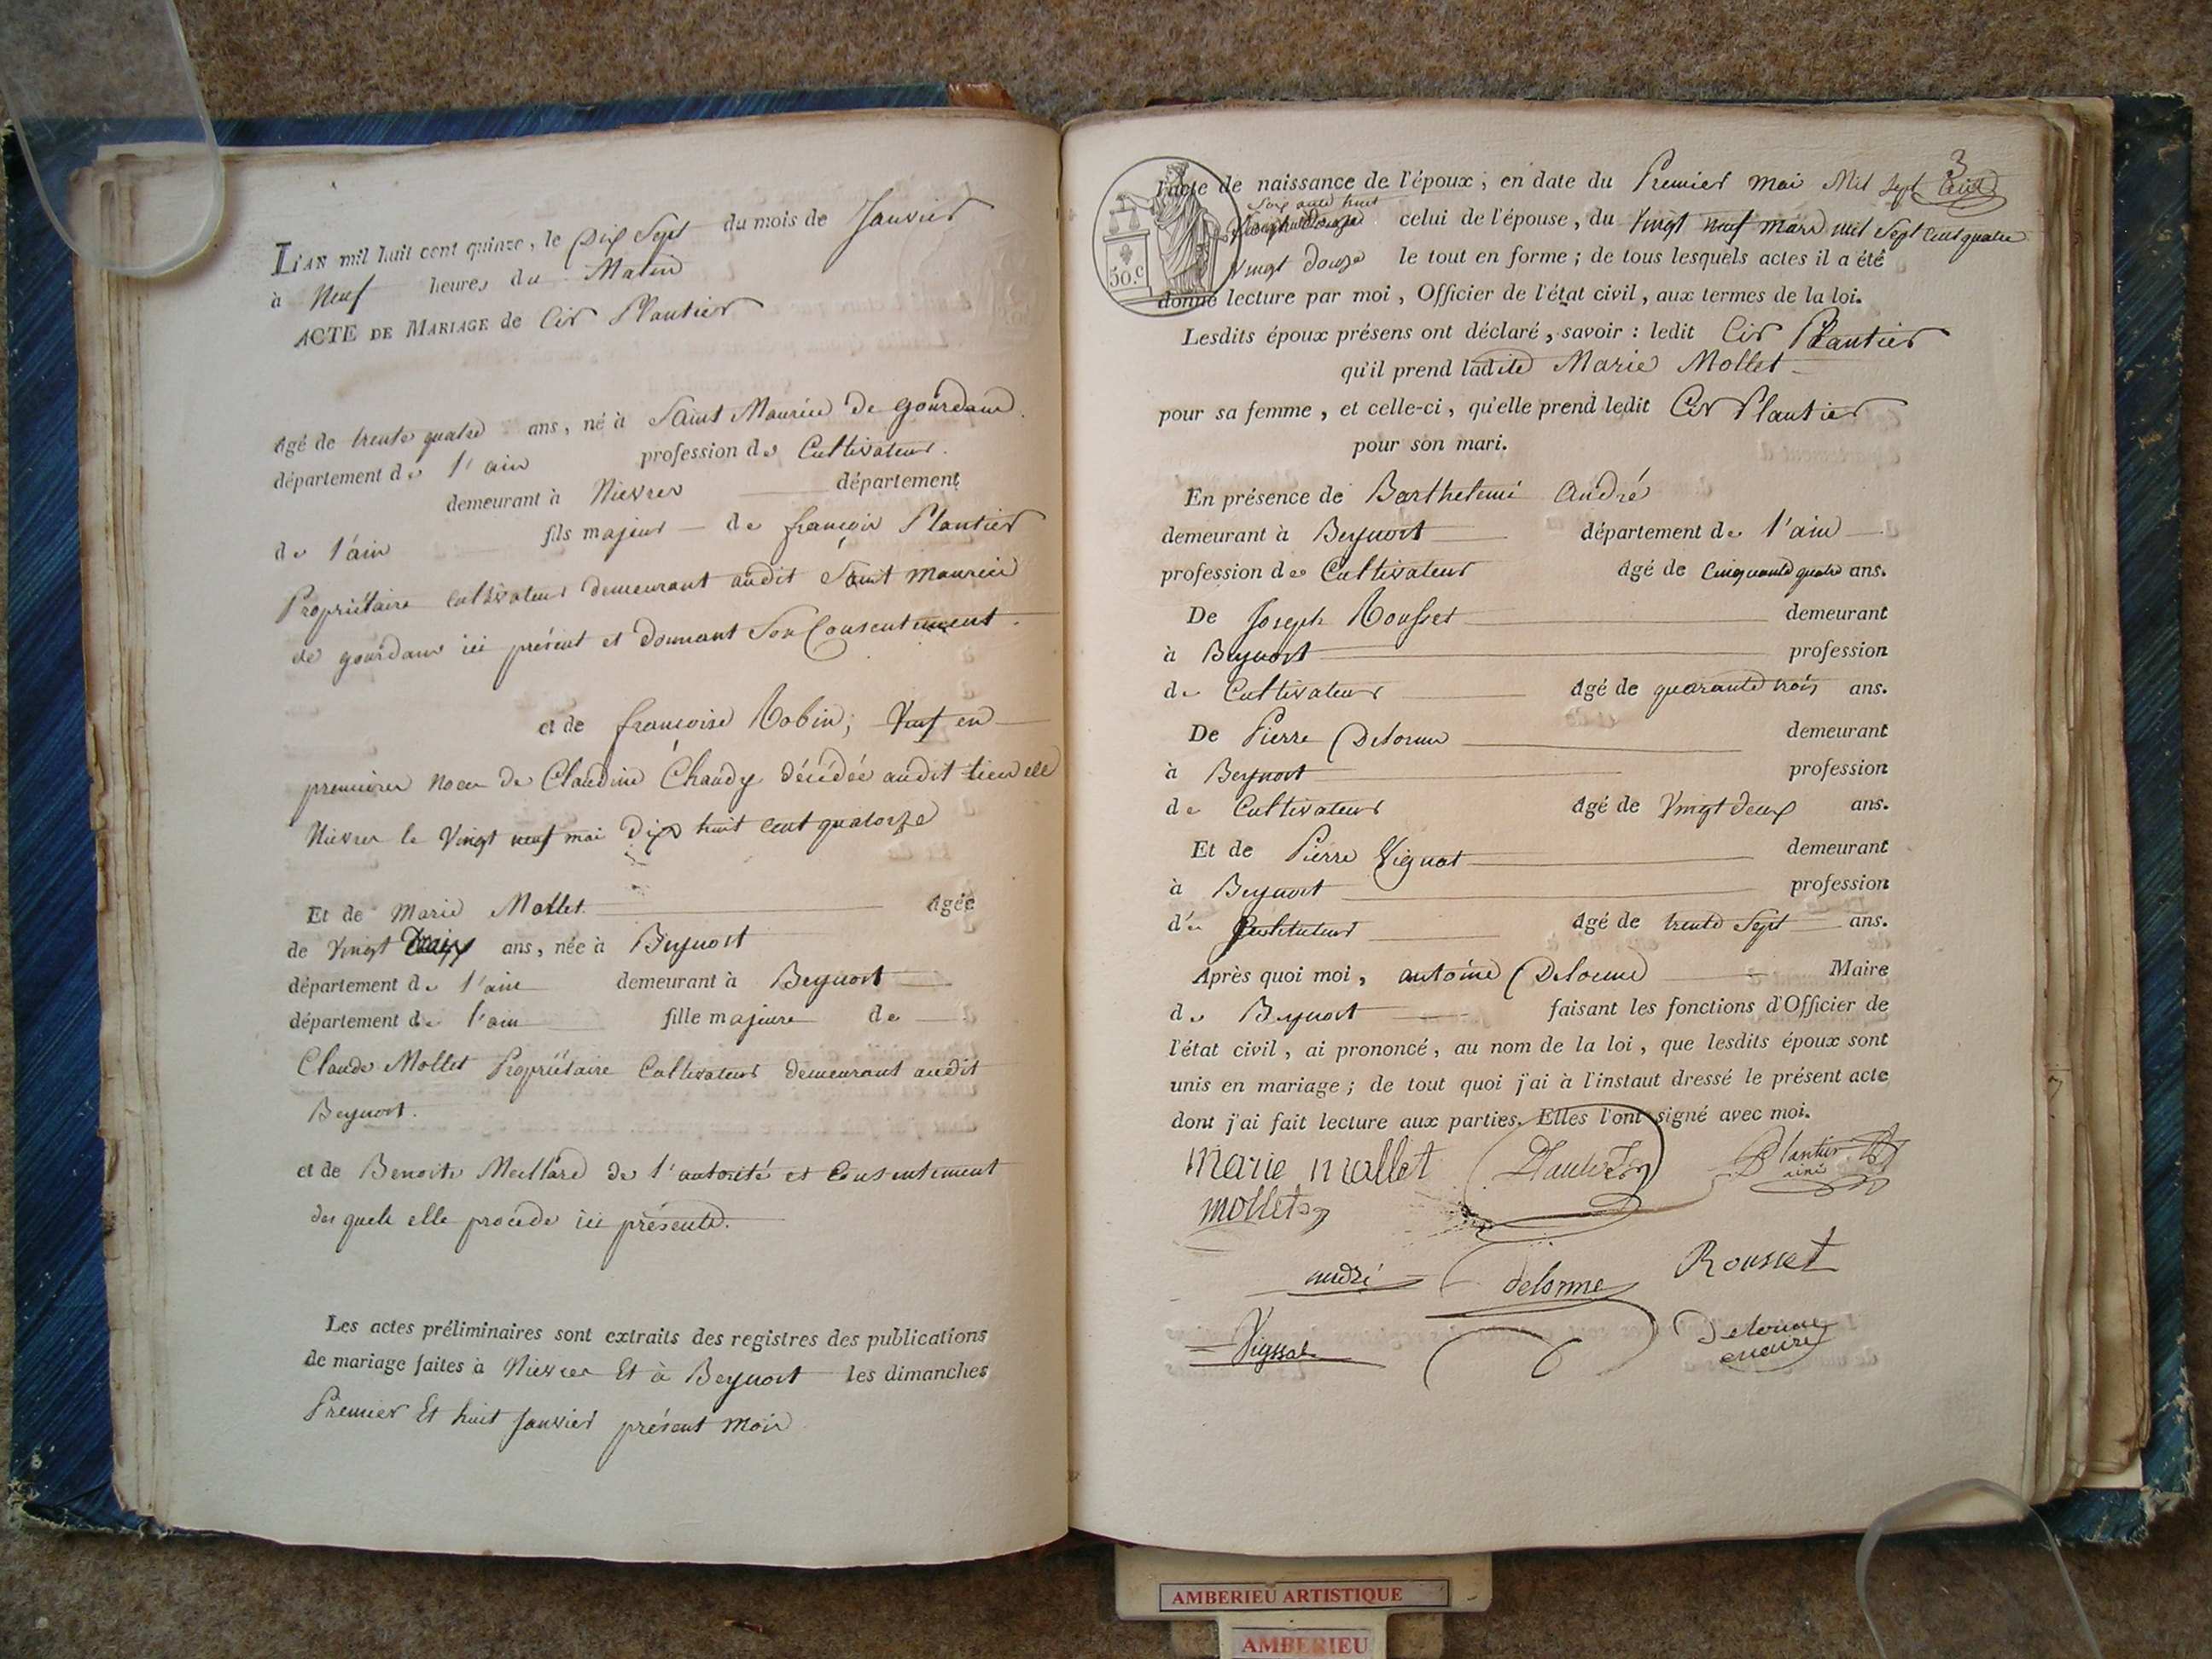 L'AN mil huit cent quinze, le Dix Sept du mois de Janvier
à Neuf heures du Matin
ACTE DE MARIAGE de Cir Plantier
Agé de trente quatre ans, né à Saint Maurice de gourdans
département de l'ain profession de Cultivateur.
demeurant à Nievroz département
de l'ain fils majeur de françois Plantier
Propriétaire cultivateur demeurant audit Saint maurice
de gourdans ici présent et Donnant Son Consentement.
et de francoise Robin; Veuf en
premieres noces de Claudine Chaudy décédée audit lieu de
Nievroz le Vingt neuf mai Dix huit cent quatorze
Et de Marie Mollet Agée
de Vingt ans, née à Beynost
département de l'ain demeurant à Beynost
département de l'ain fille majeure de
Claude Mollet Propriétaire Cultivateur demeurant audit
Beynost.
et de Benoite Meillard de l'autorité et Consentement
des quels elle procede ici présente.
Les actes préliminaires sont extraits des registres des publications
de mariage faites à Nievroz Et à Beynost les dimanches
Premier Et huit Janvier présent Mois
3
l'acte de naissance de l'époux; en date du Premier mai Mil Sept Cent
Soix ante huit
celui de l'épouse, du Vingt neuf mars mil Sept Cent quatre
Vingt douze le tout en forme; de tous lesquels actes il a été
50.c
donné lecture par moi, Officier de l'état civil, aux termes de la loi.
Lesdits époux présens ont déclaré, savoir: ledit Cir Plantier
qu'il prend ladite Marie Mollet
pour sa femme, et celle-ci, qu'elle prend ledit Cir Plantier
pour son mari.
En présence de Barthelemi André
demeurant à Beynost département de l'ain
profession de Cultivateur Agé de Cinquante quatre ans.
De Joseph Rousset demeurant
à Beynost profession
de Cultivateur Agé de quarante trois ans.
De Pierre Delorme demeurant
à Beynost profession
de Cultivateur Agé de Vingt Deux ans.
Et de Pierre Vignat demeurant
à Beynost profession
d' Instituteur Agé de trente Sept ans.
Après quoi moi, antoine Delorme Maire
de Beynost faisant les fonctions d'Officier de
l'état civil, ai prononcé, au nom de la loi, que lesdits époux sont
unis en mariage; de tout quoi j'ai à l'instaut dressé le présent acte
dont j'ai fait lecture aux parties. Elles l'ont signé avec moi.
Marie mallet Plantier Plantier
mollet
andré delorme Rousset
Delorme
maire
AMBERIEU ARTISTIQUE
AMBERIEU